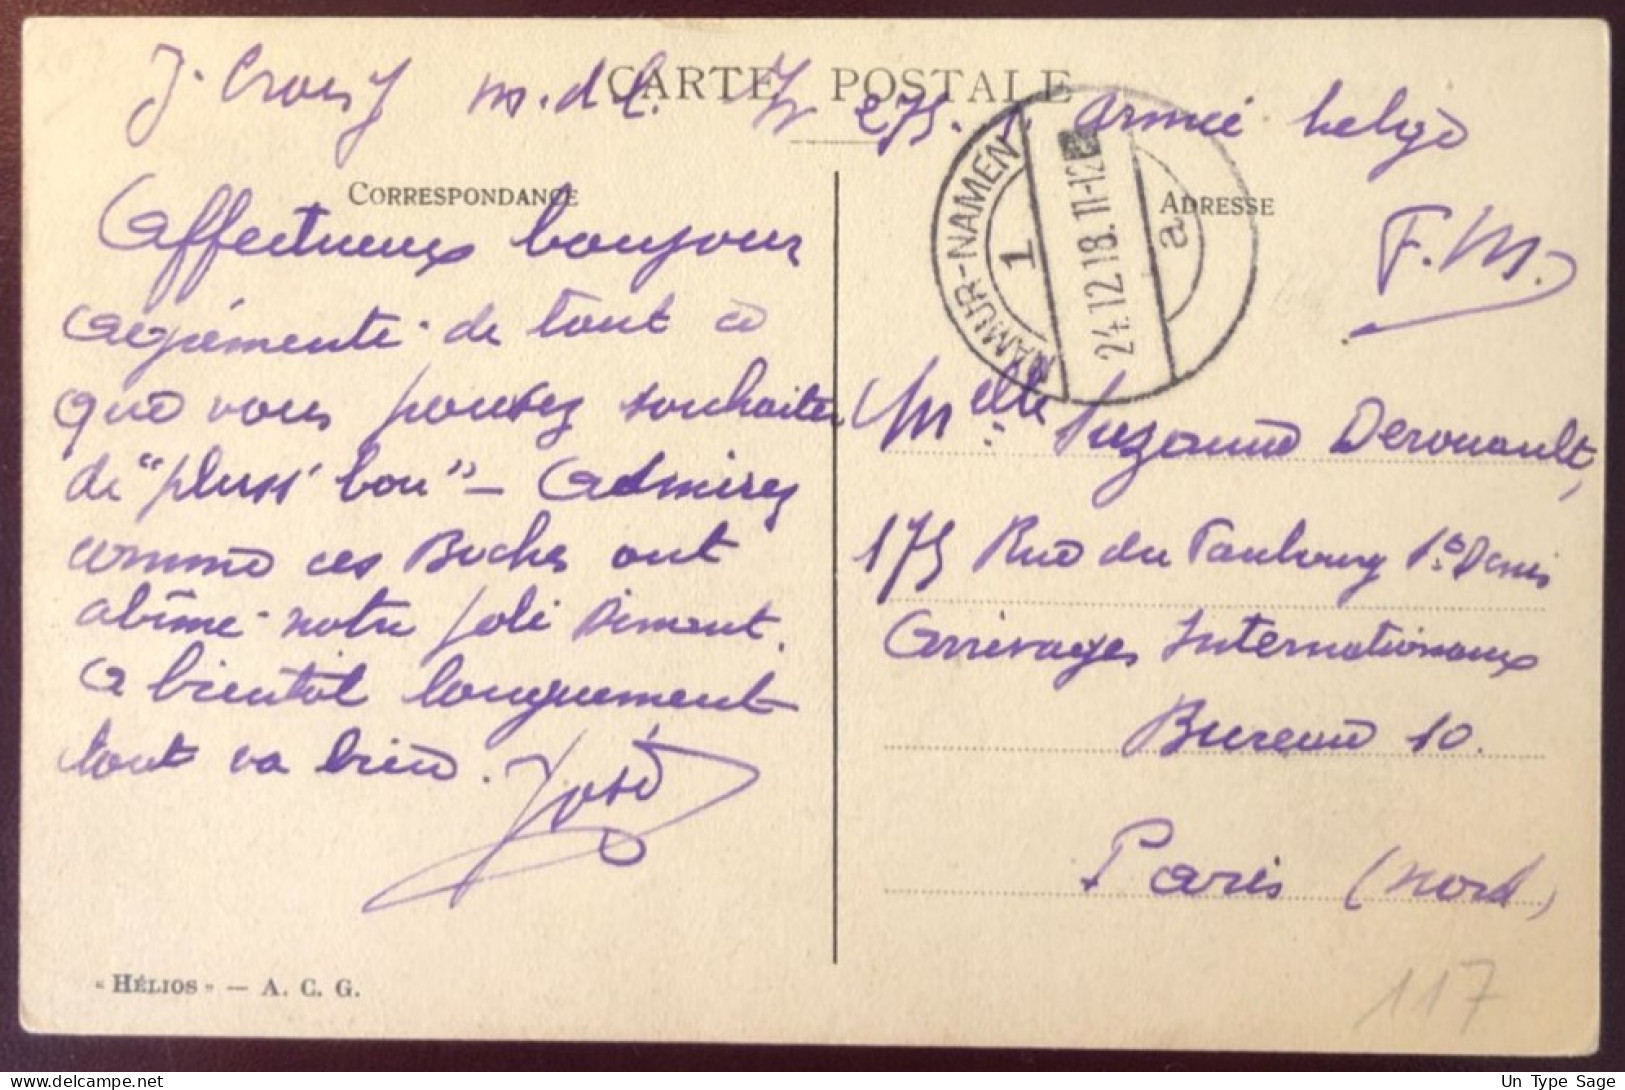 CARTE POSTALE
m.d.l. 275. Armée belge
CORRESPONDANCE
ADRESSE
F.M.
NAMUR-NAMEN
1
24.12.18. 11-12
a
Affectueux bonjour
agrémenté de tout ce
que vous pouvez souhaiter
de "pluss' bon" — Admirez
comme ces Boches ont
abîmé notre joli Dinant.
A bientôt longuement
tout va bien. José
Melle Suzanne Derouault,
175 Rue du Faubourg St Denis
Arrivages Internationaux
Bureau 10.
Paris (Nord)
« HÉLIOS » — A. C. G.
117
Un Type Sage